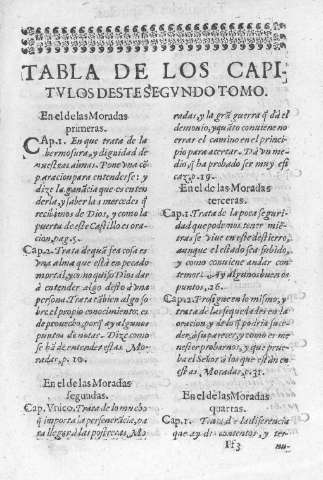 TABLA DE LOS CAPI-
TVLOS DESTE SEGVNDO TOMO.
En el de las Moradas
primeras.
CAp. 1. En que trata de la
hermosura, y dignidad de
nuestras almas. Pone vna cõ
paracion para entenderse: y
dize la ganãcia que es enten
derla, y saber las mercedes q̃
recibimos de Dios, y como la
puerta de este Castillo es ora
cion, pag. 5.
Cap. 2. Trata de quã fea cosa es
vna alma que està en pecado
mortal, y como quiso Dios dar
à entender algo desto à vna
persona. Trata tãbien algo so
bre el propio conocimiento: es
de prouecho, porq̃ ay algunos
puntos de notar. Dize como
se hã de entender estas Mo-
radas, p. 10.
En el de las Moradas
segundas.
Cap. Vnico. Trata de lo mucho
q̃ importa la perseuerãcia, pa
ra llegar à las postreras Mo
radas, y la grã guerra q̃ dà el
demonio, y quãto conuiene no
errar el camino en el princi-
pio para acertar. Dà vn me
dio, q̃ ha probado ser muy efi
caz, p. 19.
En el de las Moradas
terceras.
Cap. 1. Trata de la poca seguri-
dad que podemos tener miē-
tras se viue en este destierro,
aunque el estado sea subido,
y como conuiene andar con
temor. Ay algunos buenos
puntos, 26.
Cap. 2. Prosigue en lo mismo, y
trata de las sequedades en la
oracion, y de lo q̃ podria suce-
der, à su parecer, y como es me
nester probarnos, y que prue-
ba el Señor à los que estàn en
estas Moradas, p. 31.
En el de las Moradas
quartas.
Cap. 1. Trata de la diferencia
que ay de contentos, y ter-
Ff3
nu-